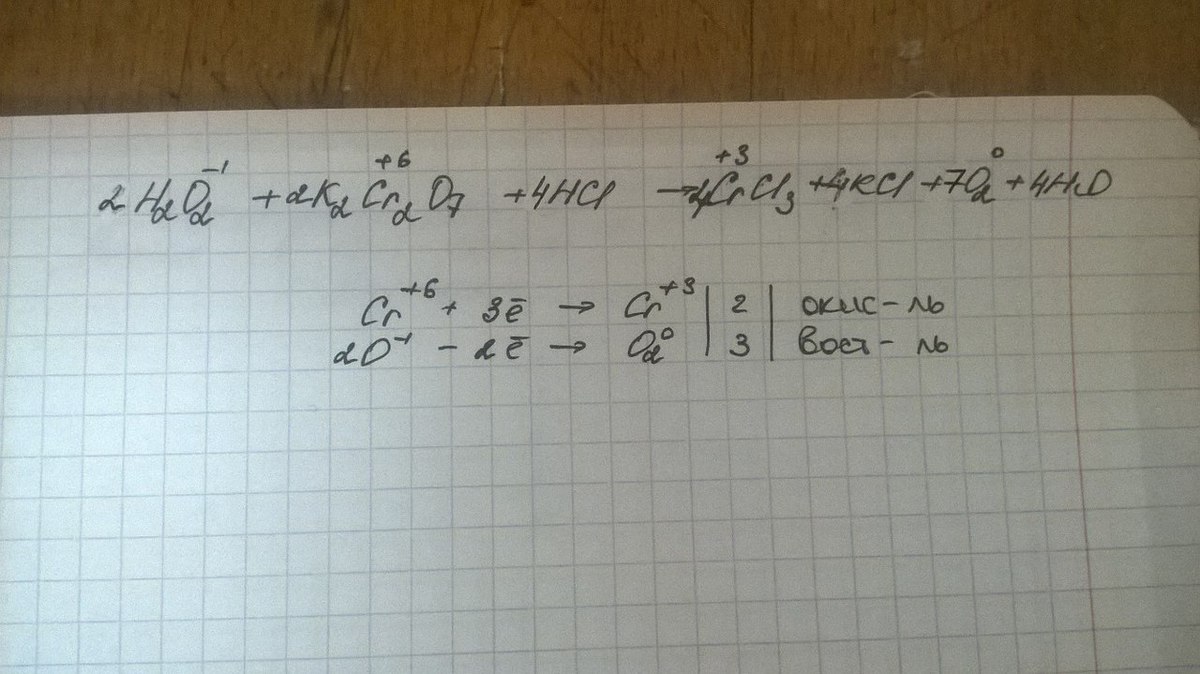 2H₂O₂⁻¹ + 2K₂Cr₂⁺⁶O₇ + 4HCl → 4Cr⁺³Cl₃ + 4KCl + 7O₂⁰ + 4H₂O
Cr⁺⁶ + 3ē → Cr⁺³ | 2 | окис-ль
2O⁻¹ - 2ē → O₂⁰ | 3 | Вост-ль